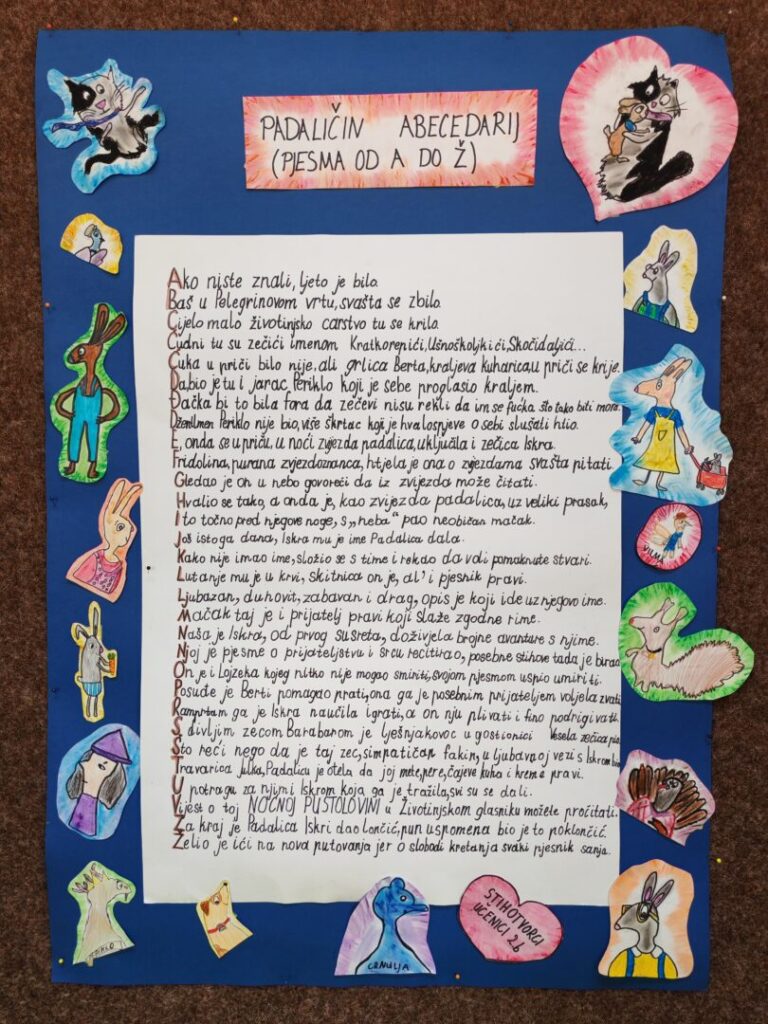 PADALIČIN ABECEDARIJ
(PJESMA OD A DO Ž)
Ako niste znali, ljeto je bilo.
Baš u Pelegrinovom vrtu, svašta se zbilo.
Cijelo malo životinjsko carstvo tu se krilo.
Čudni tu su zečići imenom Kratkorepići, Ušnoškoljkići, Skočidaljići...
Ćuka u priči bilo nije, ali grlica Berta, kraljeva kuharica u priči se krije.
Da, bio je tu i jarac Periklo koji je sebe proglasio kraljem.
Đačka bi to bila fora da zečevi nisu rekli da im se fućka, što tako biti mora.
Dženlmen Periklo nije bio, više škrtac koji je hvalospjeve o sebi slušati htio.
E, onda se u priču, u noći zvijezda padalica, uključila i zečica Iskra.
Fridolina, purana zvjezdoznanca, htjela je ona o zvijezdama svašta pitati.
Gledao je on u nebo govoreći da iz zvijezda može čitati.
Hvalio se tako, a onda je, kao zvijezda padalica, uz veliki prasak,
I to točno pred njegove noge, s „neba“ pao neobičan mačak.
Još istoga dana, Iskra mu je ime Padalica dala.
Kako nije imao ime, složio se s time i rekao da voli pomaknute stvari.
Lutanje mu je u krvi, skitnica on je, al' i pjesnik pravi.
Ljubazan, duhovit, zabavan i drag, opis je koji ide uz njegovo ime.
Mačak taj je i prijatelj pravi koji slaže zgodne rime.
Naša je Iskra, od prvog susreta, doživjela brojne avanture s njime.
Njoj je pjesme o prijateljstvu i srcu recitirao, posebne stihove tada je birao.
On je i Lojzeka kojeg nitko nije mogao smiriti, svojom pjesmom uspio umiriti.
Posuđe je Berti pomagao prati, ona ga je posebnim prijateljem voljela zvati.
Ramprtam ga je Iskra naučila igrati, a on nju plivati i fino podrigivati.
S divljim zecom Barabarom je Lješnjakovac u gostionici vesela zečica pio.
Što reći nego da je taj zec, simpatičan fakin, u ljubavnoj vezi s Iskrom bio.
Travarica Julka, Padalicu je otela da joj mete, pere, čajeve kuha i kreme pravi.
U potragu za njim i Iskrom koja ga je tražila, svi su se dali.
Vijest o toj NOĆNOJ PUSTOLOVINI u Životinjskom glasniku možete pročitati.
Za kraj je Padalica Iskri dao lončić, pun uspomena bio je to poklončić.
Želio je ići na nova putovanja jer o slobodi kretanja svaki pjesnik sanja.
VILMA
CRNULJA
STIHOTVORCI
UČENICI 2.b